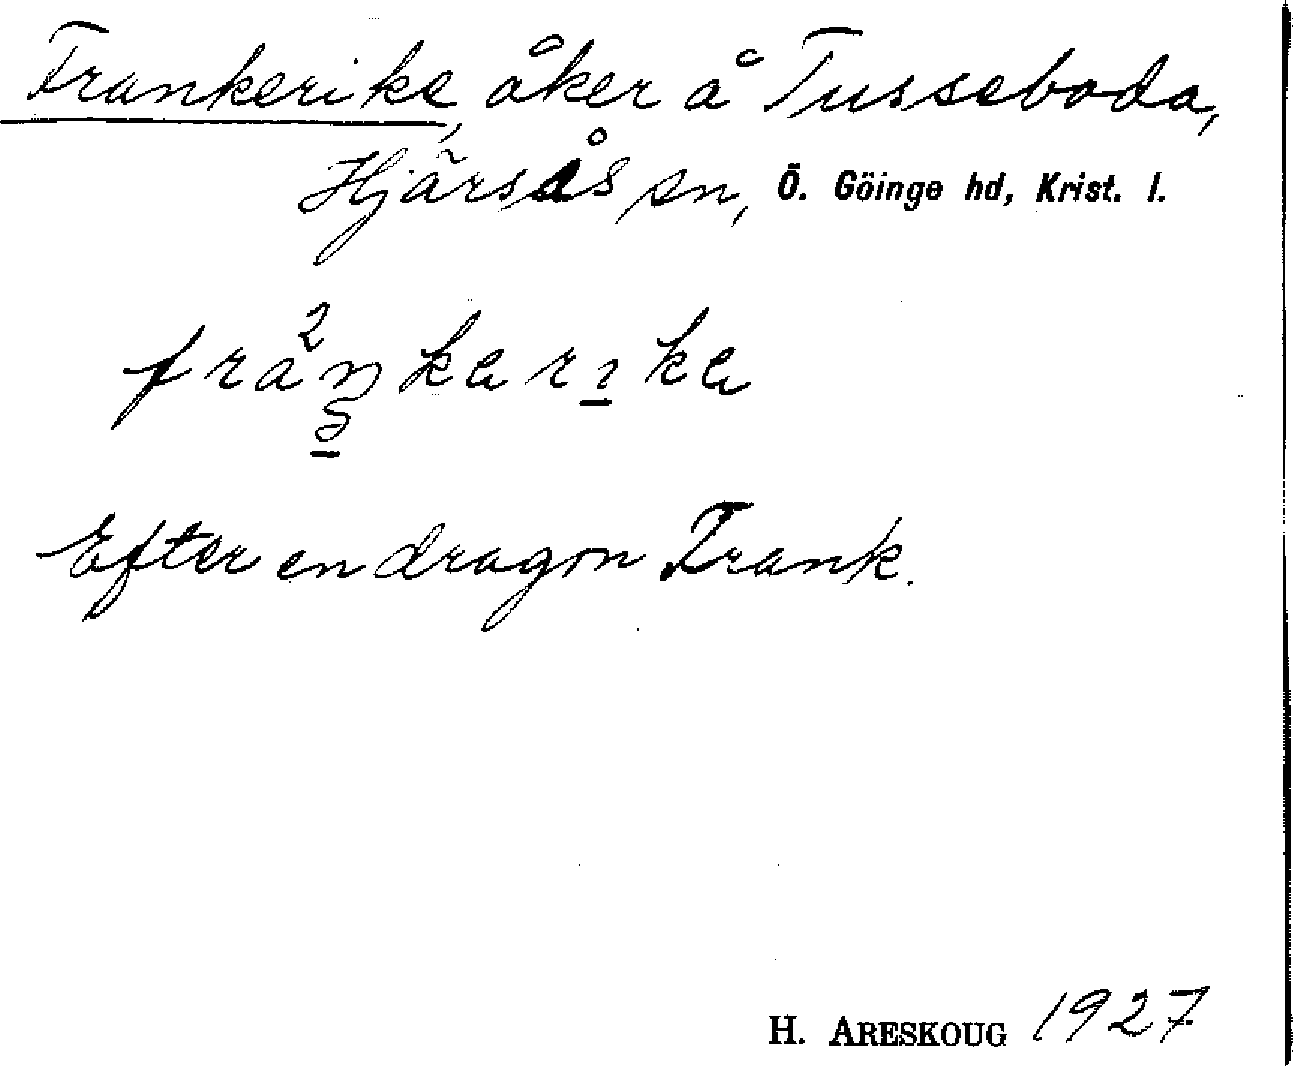 Frankerike, åker å Tusseboda,
Hjärsås sn, Ö. Göinge hd, Krist. l.
Efter en dragon Frank.
H. ARESKOUG 1927